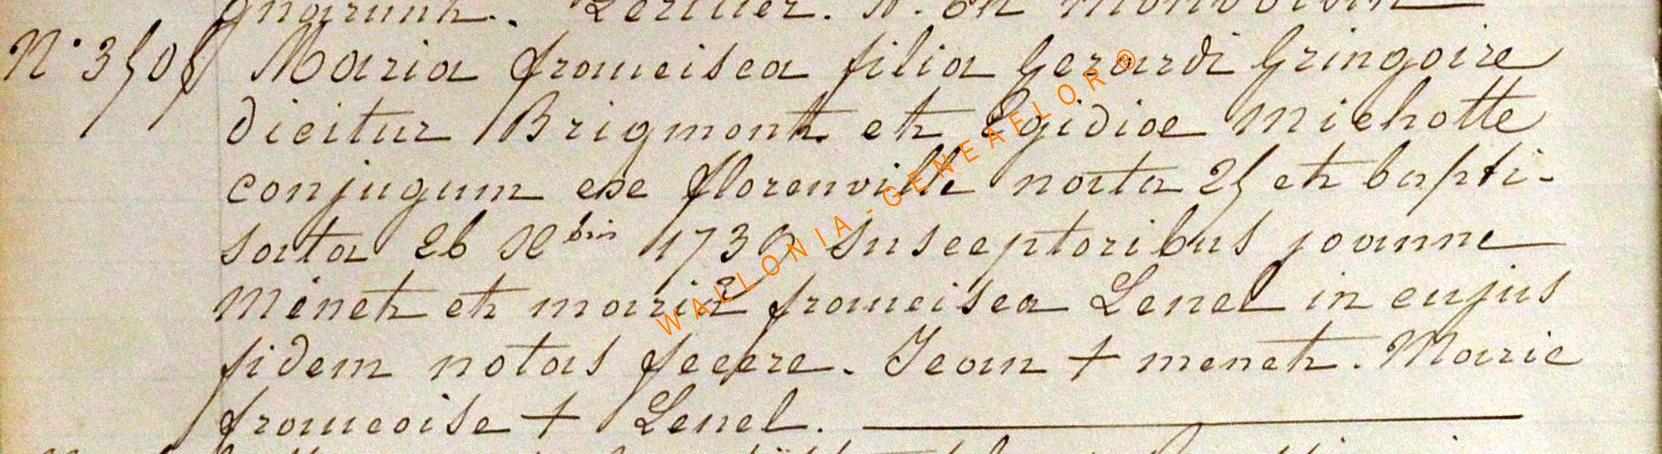 N° 3505 Maria francisca filia Gerardi Gringoire
dicitur Brigmont et Egidiae Michotte
conjugum ex florenville nata 25 et bapti-
sata 26 Xbris 1739 susceptoribus joanne
Menet et mariâ francisca Lenel in cujus
fidem notas fecere. Jean + menet. Marie
francoise + Lenel.
WALLONIA-GENEAFLOR®